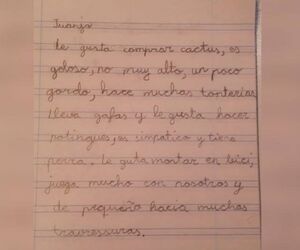 Juanjo
le gusta comprar cactus, es
goloso, no muy alto, un poco
gordo, hace muchas tonterías
lleva gafas y le gusta hacer
potingues, es simpatico y tiene
perra. Le guta montar en bici,
juega mucho con nosotros y
de pequeño hacia muchas
travressuras.